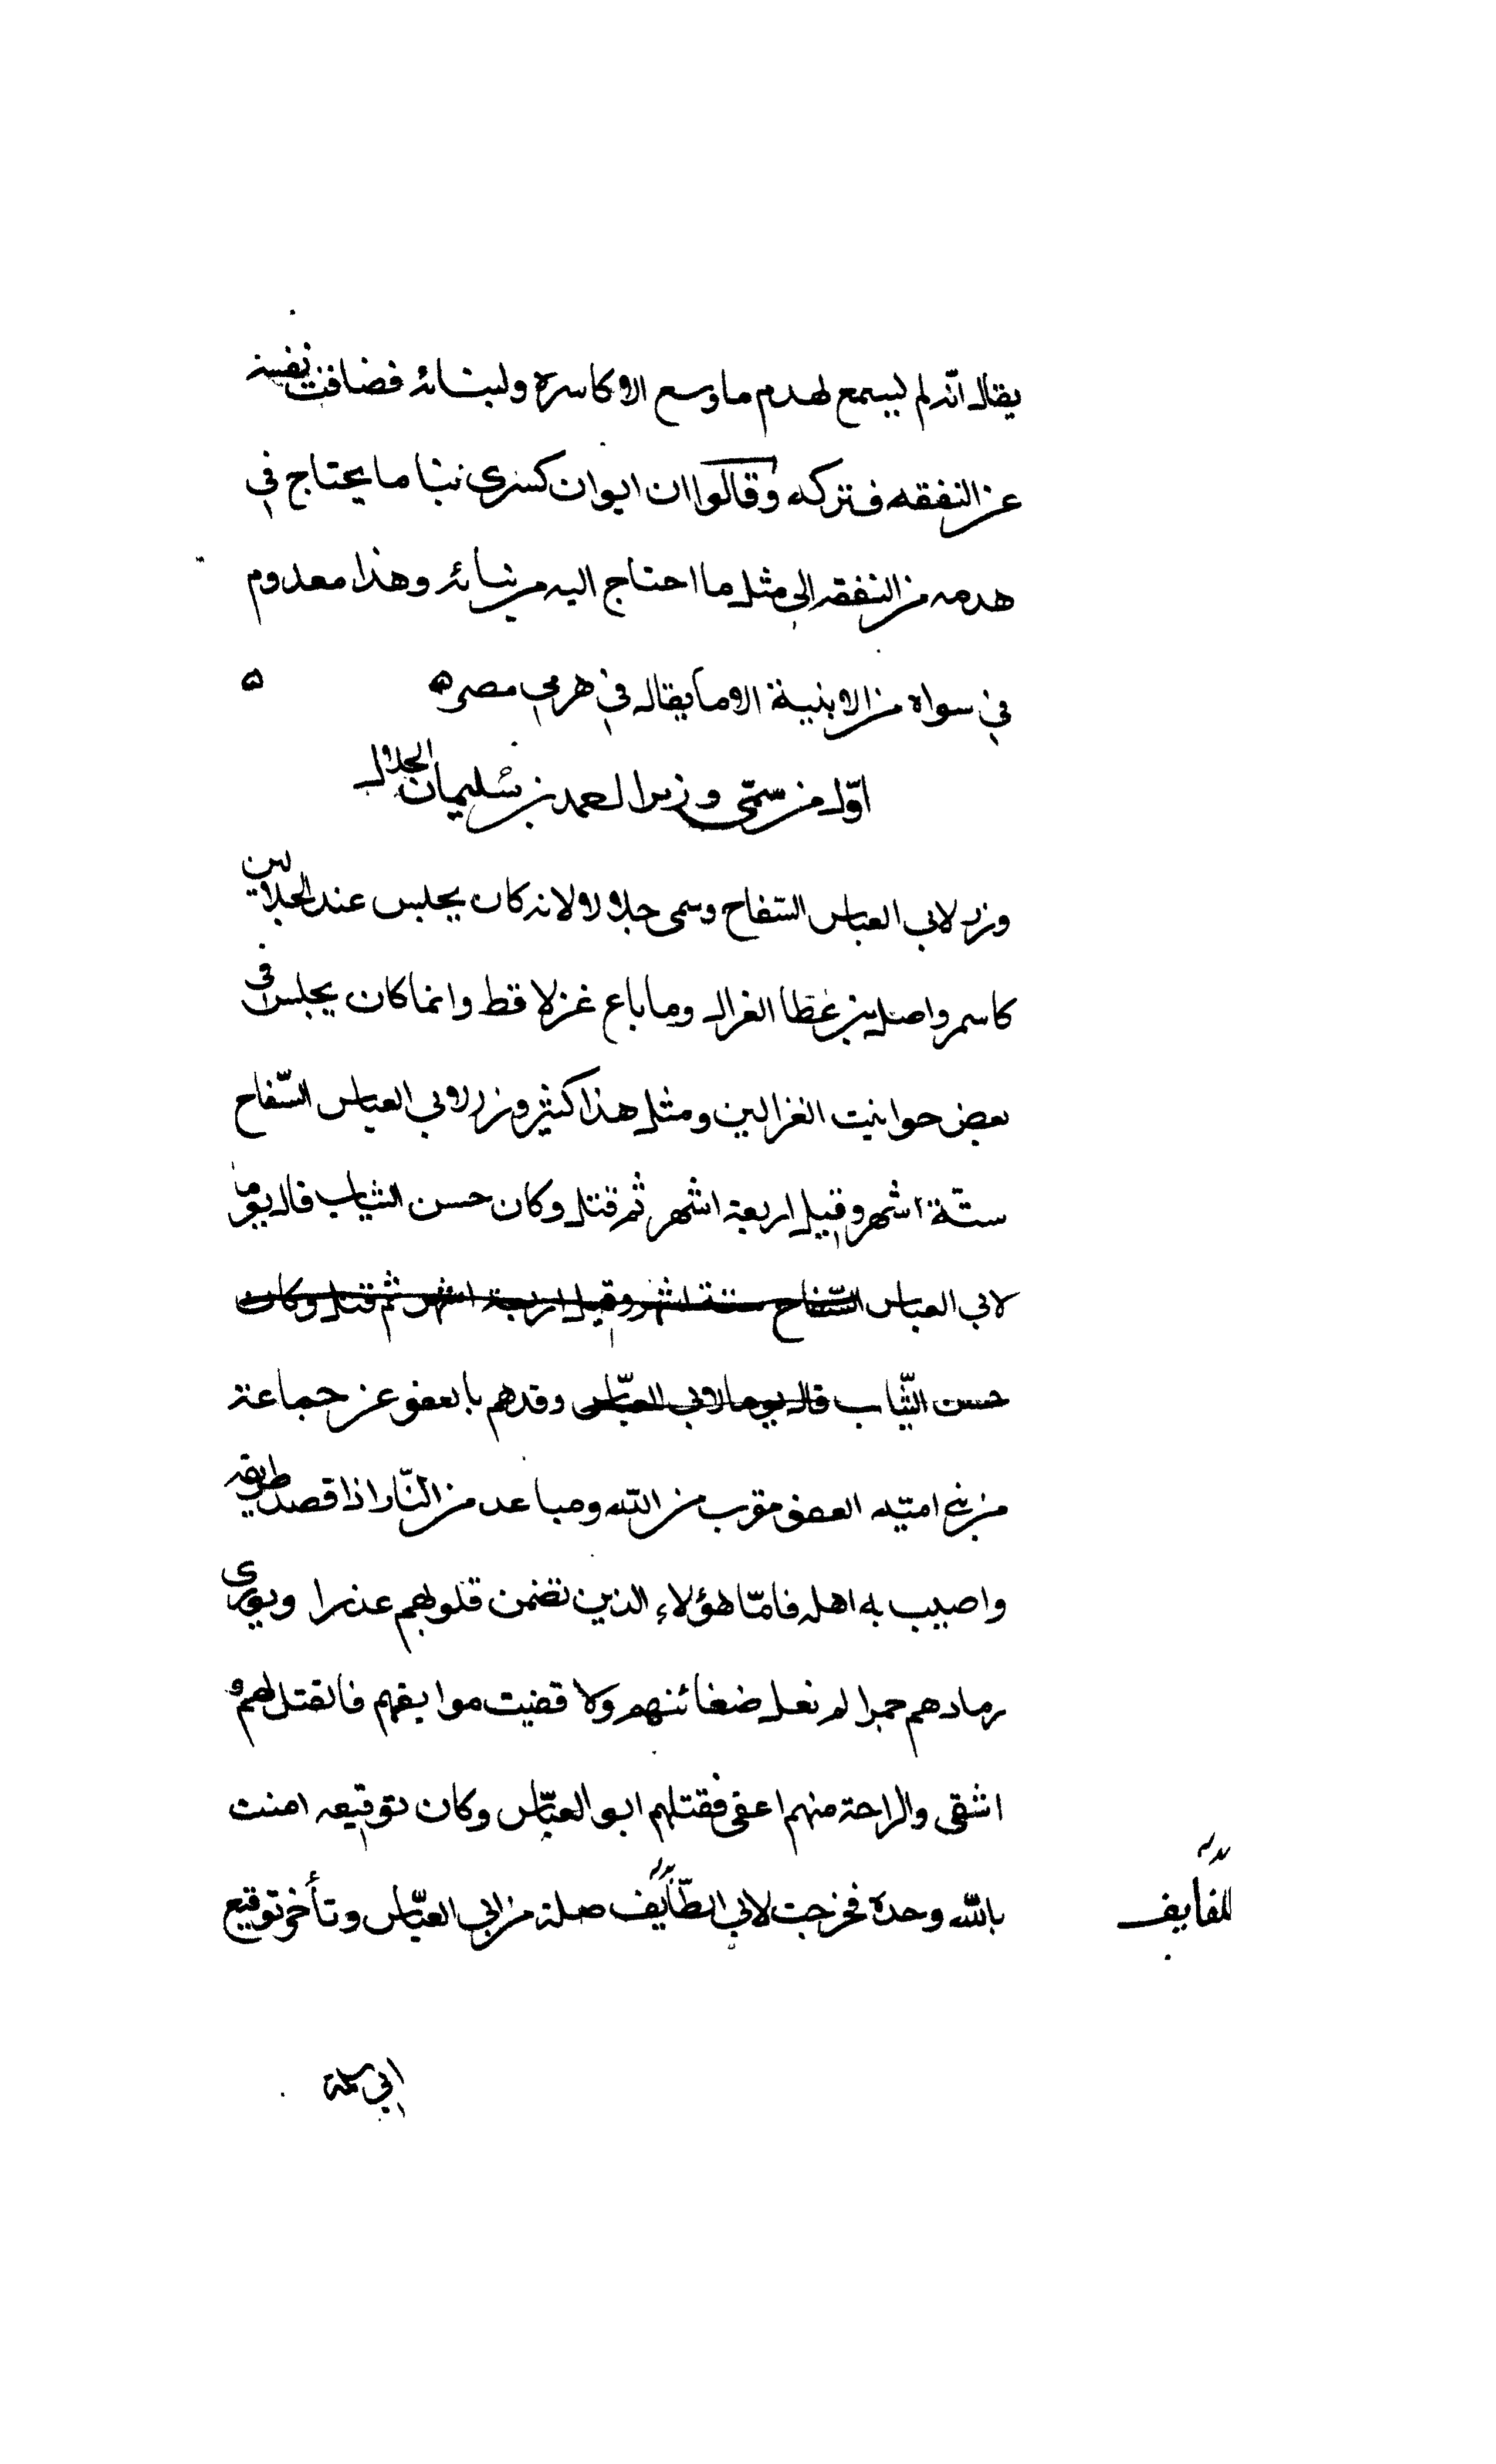 يقال انه لم ليسمع لهدم ما وسع الاكاسرة ولبنائه فضاقت نفسه
عن النفقه فتركه وقالوا ان ايوان كسرى نبنا ما يحتاج في
هدمه من النفقه الى مثل ما احتاج اليه من بنائه وهذا معدوم
في سواه من الابنية الا ما يقال في هرمي مصر ه ه
اوّل من سمّى وزيرا بن سليمان الخلال
وزر لابي العباس السّفاح وسمى خلالا لانه كان يجلس عند الخلالين
كاسم واصل بن عطا الغزال وما باع غزلا قط وانما كان يجلس في
بعض حوانيت الغزالين ومثل هذا كثير وزر لابي العباس السّفاح
ستّة اشهر وقيل اربعة اشهر ثم قتل وكان حسن الثياب قال يوما
لابي العباس السّفاح ستة اشهر وقيل اربعة اشهر ثم قتل وكان
حسن الثّياب قال يوما لابي العبّاس وقد هم بالعفو عن جماعة
من بني اميّه العفو مقرب من الله ومباعد من النّار اذا قصد طريقه
واصيب به اهله فامّا هؤلاء الذين تضمن قلوبهم عذرا ويورى
رمادهم جمرا لم نعل ضغائنهم ولا قضيت موابقهم فالقتل لهم و
اشقى والراحة منهم اعفى فقتلهم ابو العبّاس وكان توقيعه امنت
بالله وحده فخرجت لابي الطّايف صلة من ابي العبّاس وتأخر توقيع
للفايف
ابي سلمة